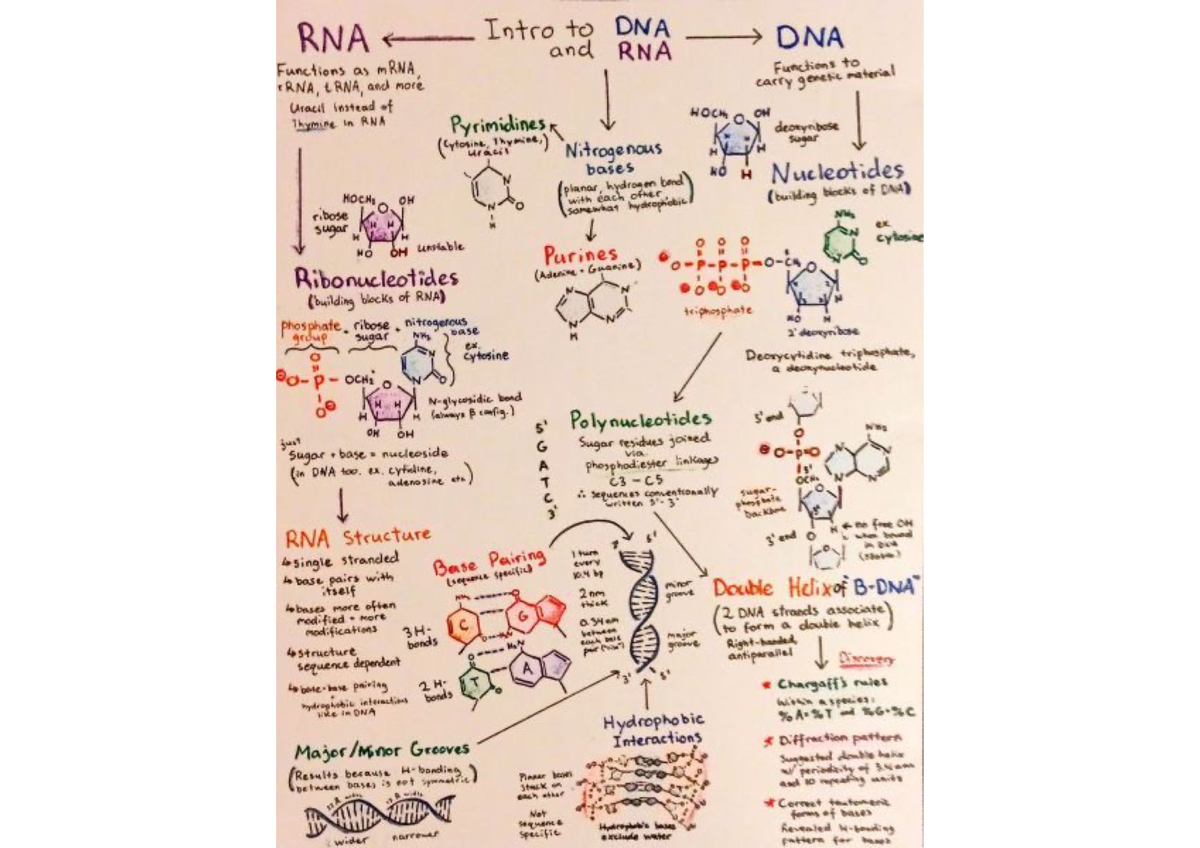 Intro to DNA
and RNA
RNA
Functions as mRNA,
rRNA, tRNA, and more
Uracil instead of
Thymine in RNA
HOCH₂ OH
ribose
sugar
H H
HO OH
unstable
Ribonucleotides
(building blocks of RNA)
phosphate group + ribose sugar + nitrogenous base
NH₂
ex.
cytosine
OCH₂
N-glycosidic bond
(always β config.)
OH OH
just
sugar + base = nucleoside
(in DNA too. ex. cytidine,
adenosine etc)
RNA Structure
↳ single stranded
↳ base pairs with
itself
↳ bases more often
modified + more
modifications
↳ structure
sequence dependent
↳ base-base pairing
+
hydrophobic interactions
like in DNA
Pyrimidines
(Cytosine, Thymine,
Uracil)
Nitrogenous
bases
(planar, hydrogen bond
with each other,
somewhat hydrophobic)
Purines
(Adenine + Guanine)
DNA
Functions to
carry genetic material
HOCH₂ OH
deoxyribose
sugar
HO H
Nucleotides
(building blocks of DNA)
NH₂
ex.
cytosine
triphosphate
2' deoxyribose
Deoxycytidine triphosphate,
a deoxynucleotide
Polynucleotides
Sugar residues joined
via
phosphodiester linkages
C3 - C5
∴ sequences conventionally
written 5'- 3'
5'
G
A
T
C
3'
5' end
NH₂
sugar-
phosphate
backbone
3' end
no free OH
when bound
in DNA
(stable)
Base Pairing
(sequence specific)
3 H-
bonds
C G
2 H-
bonds
T A
1 turn
every
10.4 bp
2 nm
thick
0.34 nm
between
each base
pair
3' 5'
minor
groove
major
groove
3' 5'
Double Helix of "B-DNA"
(2 DNA strands associate
to form a double helix)
Right-handed,
antiparallel
Discovery
* Chargaff's rules
Within a species:
%A=%T and %G=%C
* Diffraction pattern
Suggested double helix
w/ periodicity of 3.4 nm
and 10 repeating units
* Correct tautomeric
forms of bases
Revealed H-bonding
pattern for bases
Major/Minor Grooves
(Results because H-bonding
between bases is not symmetric)
wider narrower
Hydrophobic
Interactions
Planar bases
stack on
each other
Not
sequence
specific
Hydrophobic bases
exclude water